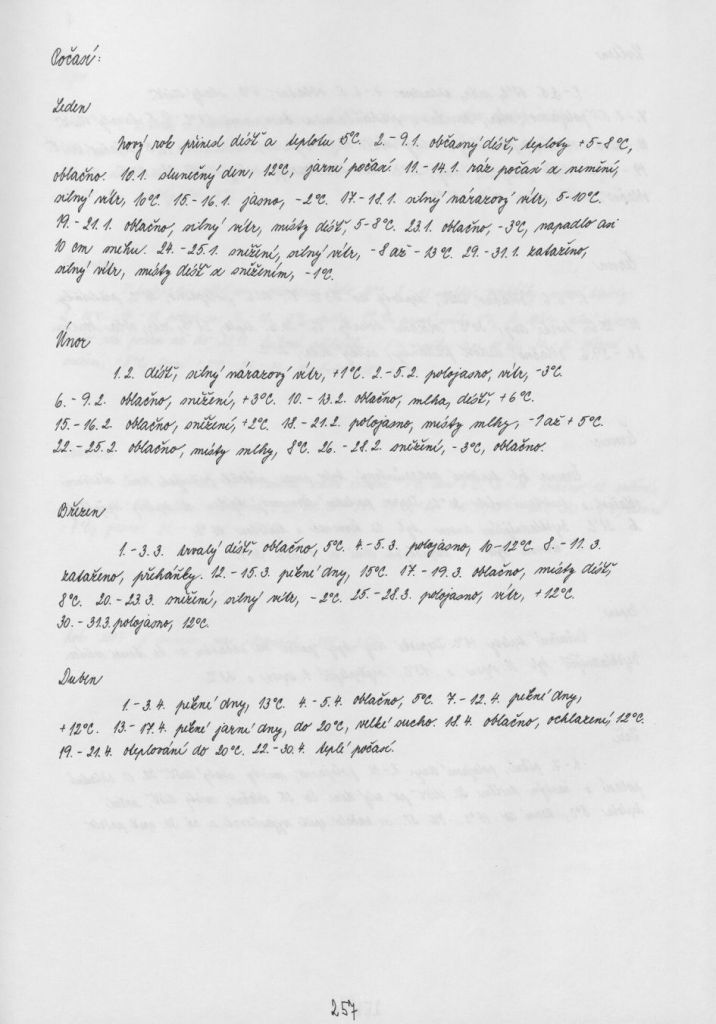 Počasí:
Leden
Nový rok přinesl déšť a teplotu 5°C. 2.-9.1. občasný déšť, teploty +5-8°C,
oblačno. 10.1. slunečný den, 12°C, jarní počasí. 11.-14.1. ráz počasí se nemění,
silný vítr, 10°C. 15.-16.1. jasno, -2°C. 17.-18.1. silný nárazový vítr, 5-10°C.
19.-21.1. oblačno, silný vítr, místy déšť, 5-8°C. 23.1. oblačno, -3°C, napadlo asi
10 cm sněhu. 24.-25.1. sněžení, silný vítr, -8 až -13°C. 29.-31.1. zataženo,
silný vítr, místy déšť se sněžením, -1°C.
Únor
1.2. déšť, silný nárazový vítr, +1°C. 2.-5.2. polojasno, vítr, -3°C.
6.-9.2. oblačno, sněžení, +3°C. 10.-13.2. oblačno, mlha, déšť, +6°C.
15.-16.2. oblačno, sněžení, +2°C. 18.-21.2. polojasno, místy mlhy, -1 až +5°C.
22.-25.2. oblačno, místy mlhy, 8°C. 26.-28.2. sněžení, -3°C, oblačno.
Březen
1.-3.3. trvalý déšť, oblačno, 5°C. 4.-5.3. polojasno, 10-12°C. 8.-11.3.
zataženo, přeháňky. 12.-15.3. pěkné dny, 15°C. 17.-19.3. oblačno, místy déšť,
8°C. 20.-23.3. sněžení, silný vítr, -2°C. 25.-28.3. polojasno, vítr, +12°C.
30.-31.3. polojasno, 12°C.
Duben
1.-3.4. pěkné dny, 13°C. 4.-5.4. oblačno, 5°C. 7.-12.4. pěkné dny,
+12°C. 13.-17.4. pěkné jarní dny, do 20°C, velké sucho. 18.4. oblačno, ochlazení, 12°C.
19.-21.4. oteplování do 20°C. 22.-30.4. teplé počasí.
257